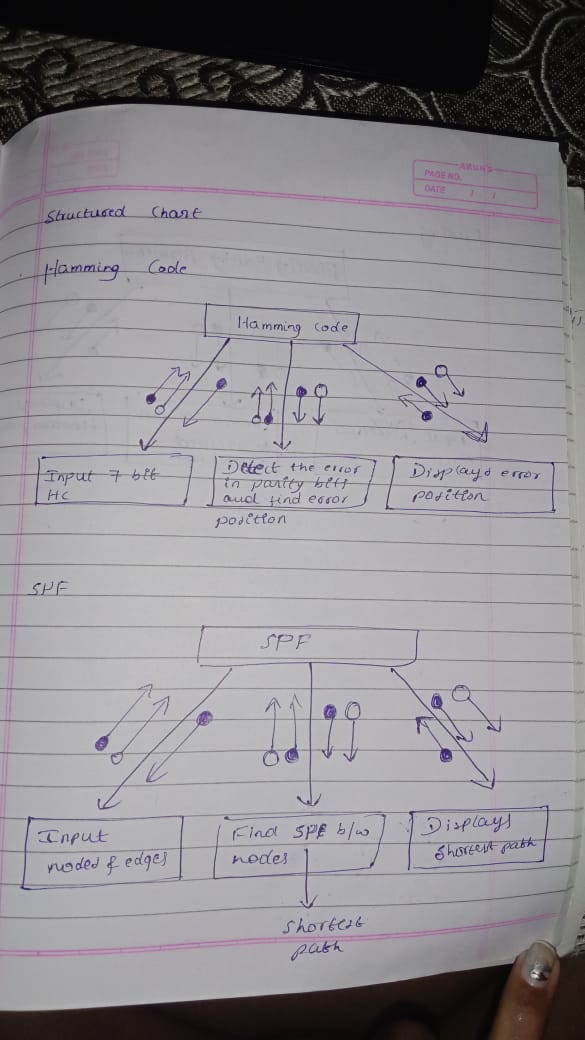 ARUN'S
PAGE NO.
DATE / /
Structured Chart
Hamming Code
Hamming Code
Input 7 bit
HC
Detect the error
in parity bits
and find error
position
Displays error
position
SPF
SPF
Input
nodes & edges
Find SPF b/w
nodes
Displays
shortest path
Shortest
path